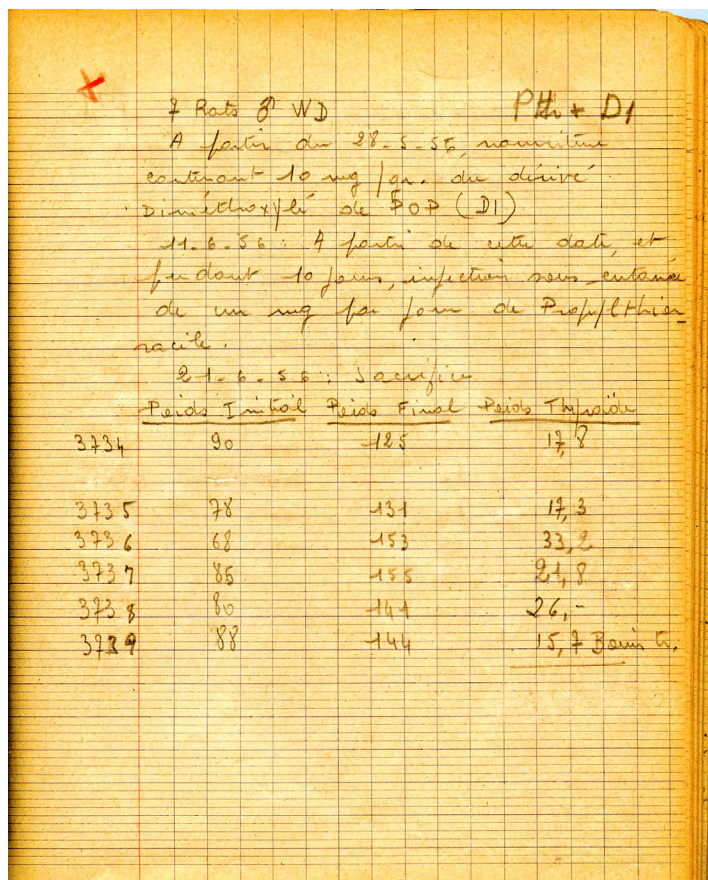 7 Rats ♂ WD PTh + D1
A partir du 28-5-56, nourriture
contenant 10 mg/gr. du dérivé
Diméthoxylé de POP (D1)
11-6-56 : A partir de cette date, et
pendant 10 jours, injection sous-cutanée
de un mg par jour de Propylthiou-
racile.
21-6-56 : Sacrifice
Poids Initial Poids Final Poids Thyroïde
3734 90 125 17,8
3735 78 131 17,3
3736 68 153 33,2
3737 85 155 21,8
3738 80 141 26,-
3739 88 144 15,7 Bouin